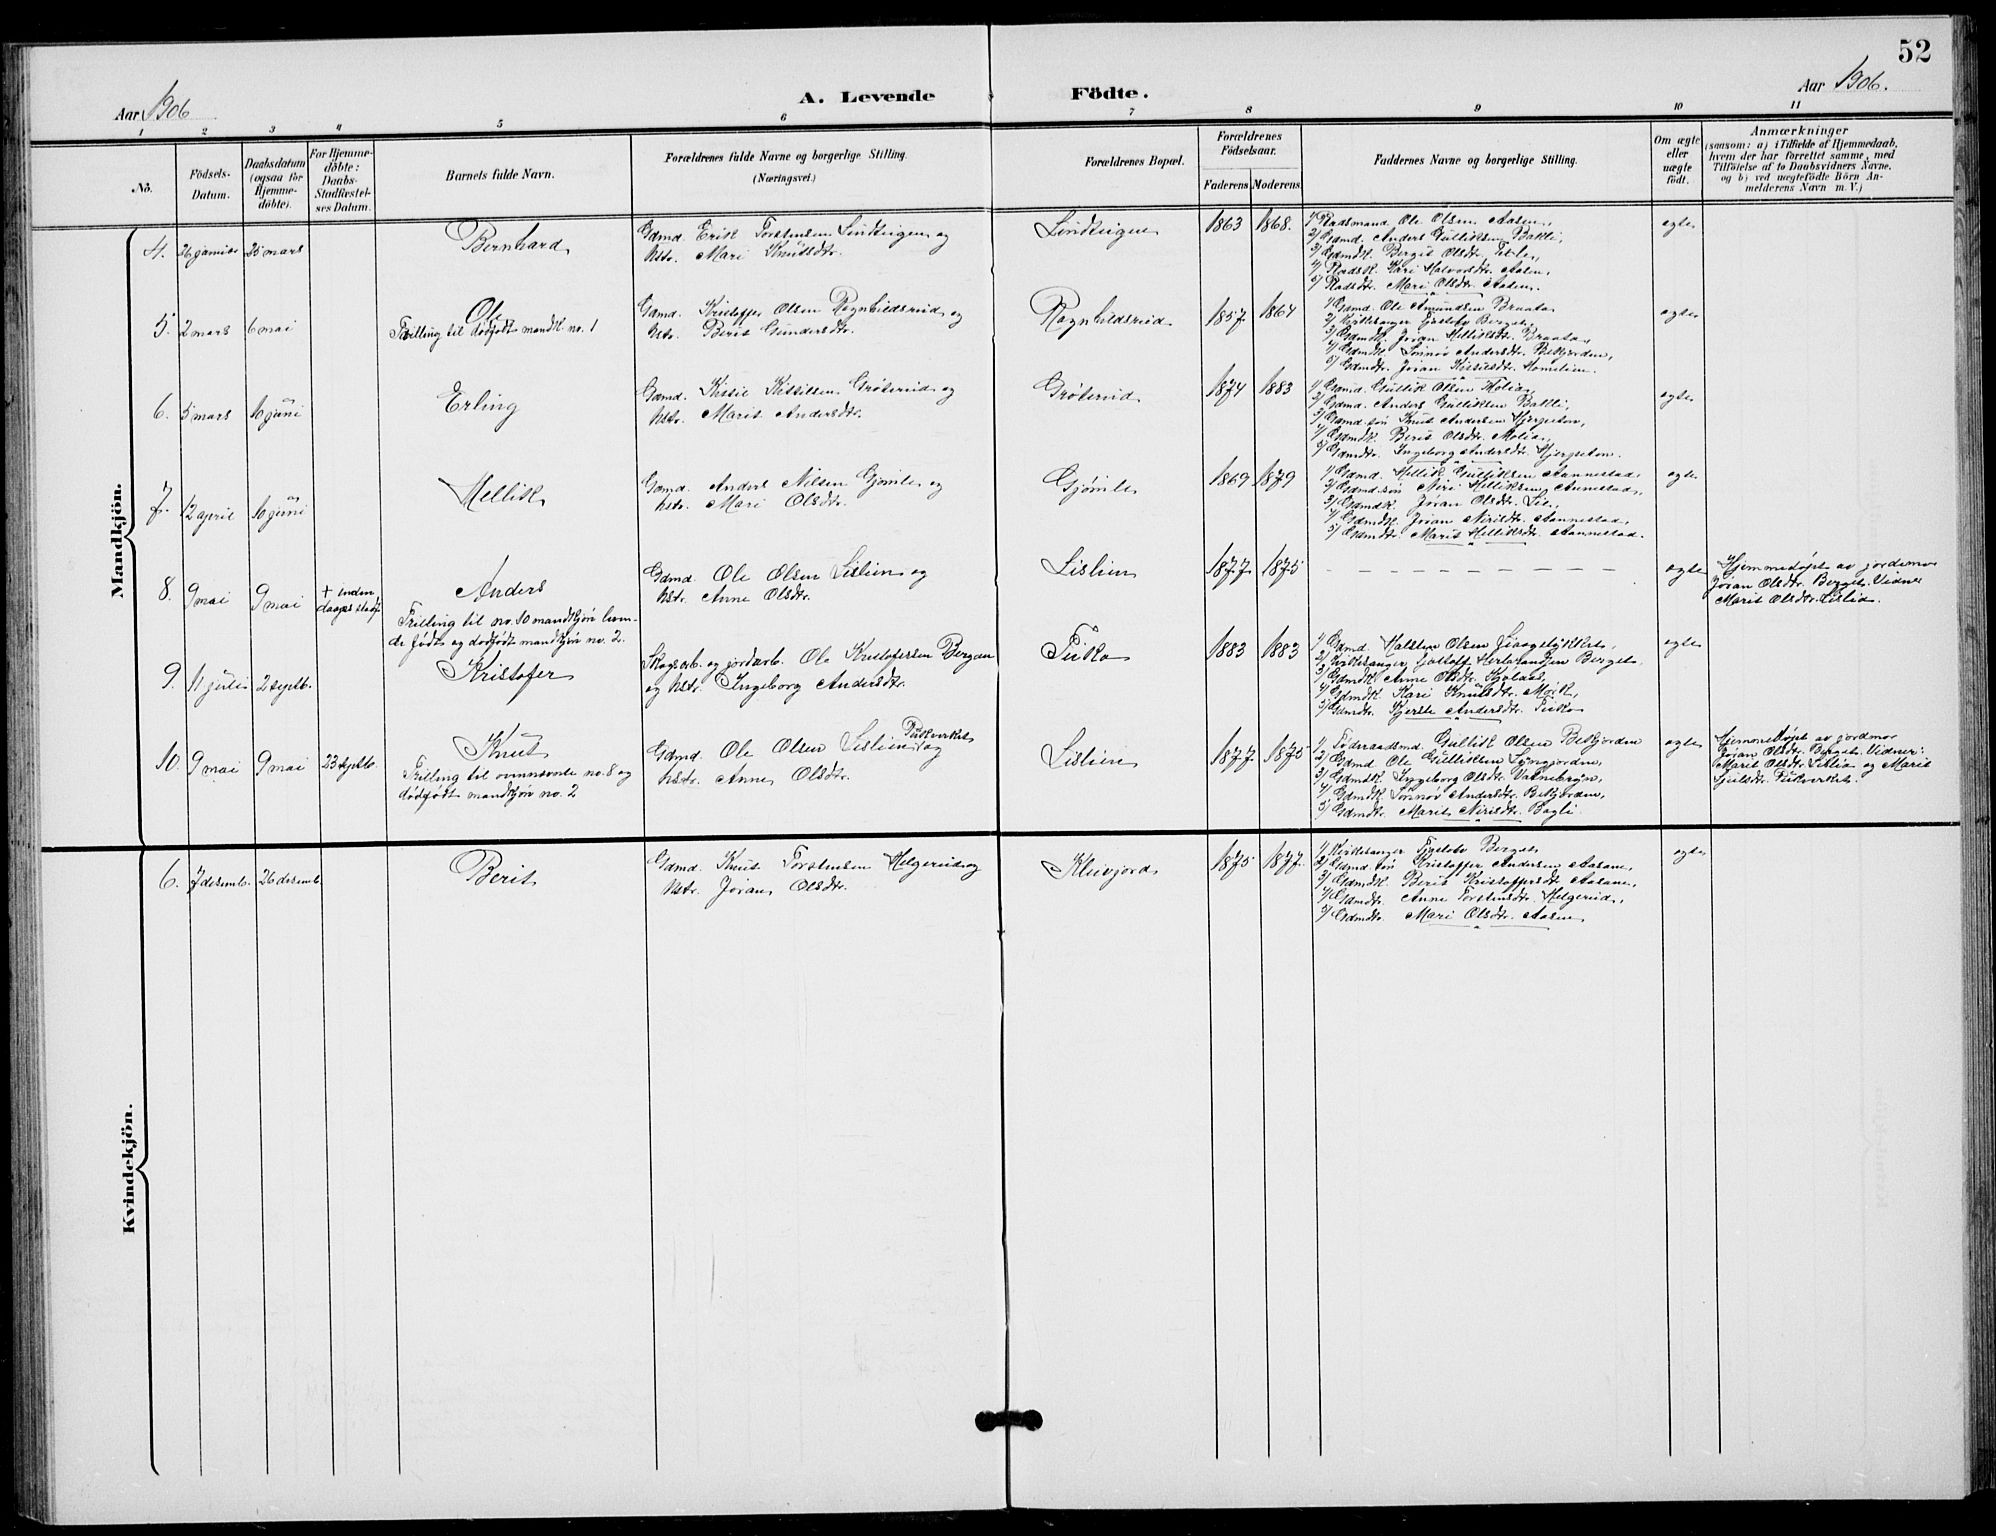 52
Aar 1906
A. Levende Födte.
Aar 1906.
1 2 3 4 5 6 7 8 9 10 11
No.
Födsels-
Datum.
Daabsdatum
(ogsaa for
Hjemme-
döbte).
For Hjemme-
döbte:
Daabs-
Stadfæstel-
ses Datum.
Barnets fulde Navn.
Forældrenes fulde Navne og borgerlige Stilling.
(Næringsvei.)
Forældrenes Bopæl.
Forældrenes
Födselsaar.
Faderens Moderens
Faddernes Navne og borgerlige Stilling.
Om ægte
eller
uægte
født.
Anmærkninger
(saasom: a) i Tilfælde af Hjemmedaab,
hvem der har forrettet samme, med
Tilföielse af to Daabsvidners Navne,
og b) ved uægtefödte Börn An-
melderens Navn m. V.)
Mandkjön.
4. 26 januar 25 mars Bernhard
Gdmd. Erik Torstensen Lindteigen og
Kstr. Mari Knutsdtr.
Lindteigen 1863 1868.
1/ Pladsmand Ole Olsen Aasen,
2/ Gdmd. Anders Gulliksen Bakli,
3/ Gdmdk. Bergit Olsdtr.
4/ Pladsk. Kari Halvorsdtr. Aasen,
5/ Pladsdtr. Mari Olsdtr. Aasen.
egte
5. 2 mars 6 mai Ole
Tvilling til dødfødt mandk. no. 1
Gdmd. Kristoffer Olsen Ragnhildsrud og
Kstr. Berit Gundersdtr.
Ragnhildsrud 1857 1864
1/ Gdmd. Ole Amundsen Braata,
2/ Kirkesanger Gustav Berget,
3/ Gdmdk. Jøran Helliksdtr. Braata,
4/ Gdmdk. Sønnøv Andersdtr. Bekjorden,
5/ Gdmdtr. Jøran Kittilsdtr. Homelien.
egte
6. 5 mars 10 juni Erling
Gdmd. Kittil Kittilsen Grøterud og
Kstr. Marit Andersdtr.
Grøterud 1874 1883
1/ Gdmd. Gullik Olsen Molia,
2/ Gdmd. Anders Gulliksen Bakli,
3/ Gdmd.søn Knut Andersen Hjerpeton,
4/ Gdmdk. Berit Olsdtr. Molia,
5/ Gdmdtr. Ingeborg Andersdtr. Hjerpeton.
egte
7. 12 april 10 juni Hellik
Gdmd. Anders Nilsen Gjømle og
Kstr. Mari Olsdtr.
Gjømle 1869 1879
1/ Gdmd. Hellik Gulliksen Aannestad,
2/ Gdmd.søn Niri Helliksen Aannestad,
3/ Gdmdk. Jøran Olsdtr. Lie,
4/ Gdmdk. Jøran Nirisdtr. Aannestad,
5/ Gdmdtr. Marit Helliksdtr. Aannestad.
egte
8. 9 mai 9 mai + inden
daaps stadf.
Anders
Trilling til no. 10 mandkjøn leven-
de fødte og dødfødt mandkjøn no. 2.
Gdmd. Ole Olsen Lislien og
Kstr. Anne Olsdtr.
Lislien 1877 1875
– – – – – – – – –
egte
Hjemmedøpt av jordemor
Jøran Olsdtr. Berget. Vidne
Marit Olsdtr. Lislia.
9. 11 juli 2 septb. Kristofer
Skogsarb. og jordarb. Ole Kristofersen Bergan
og Kstr. Ingeborg Andersdtr.
Fiiko 1883 1883
1/ Gdmd. Halsten Olsen
2/ Kirkesanger Gustav Berget,
3/ Gdmdk. Anne Olsdtr.
4/ Gdmdk. Kari Knutsdtr. Mørk,
5/ Gdmdtr. Kjersti Andersdtr. Fiiko
egte
10. 9 mai 9 mai 23 septb. Knut
Trilling til ovennevnte no. 8 og
dødfødt mandkjøn no. 2
Gdmd. Ole Olsen Lislien og
Kstr. Anne Olsdtr.
Lislien 1877 1875
1/ Føderaadsmd. Gullik Olsen Bekjorden
2/ Gdmd. Ole Gulliksen
3/ Gdmdk. Ingeborg Olsdtr.
4/ Gdmdk. Sønnøv Andersdtr. Bekjorden,
5/ Gdmdtr. Marit Nirisdtr. Bagli
egte
Hjemmedøpt av jordmor
Jøran Olsdtr. Berget. Vidner:
Marit Olsdtr. Lislia og Marit
Kvindekjön.
6. 7 desemb. 26 desemb. Berit
Gdmd. Knut Torstensen Helgerud og
Kstr. Jøran Olsdtr.
Kleivjord 1875 1877
1/ Kirkesanger Gustav Berget,
2/ Gdmd.søn Kristoffer Andersen Aasane,
3/ Gdmdk. Berit Kristoffersdtr. Aasane,
4/ Gdmdtr. Anne Torstensdtr. Helgerud,
5/ Gdmdtr. Mari Olsdtr. Aasen
egte